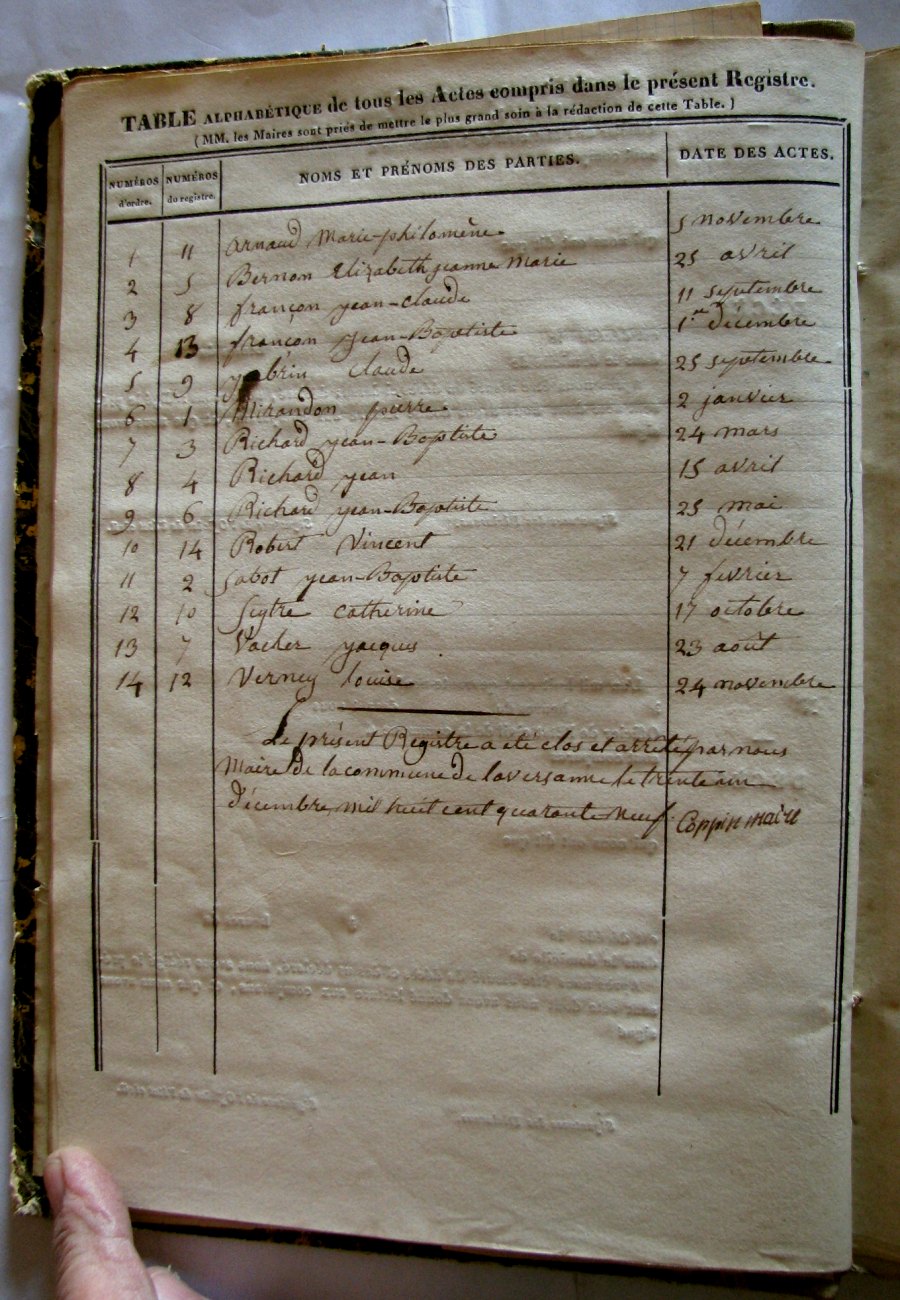 TABLE ALPHABÉTIQUE de tous les Actes compris dans le présent Registre.
( MM. les Maires sont priés de mettre le plus grand soin à la rédaction de cette Table. )
NUMÉROS d'ordre. NUMÉROS du registre. NOMS ET PRÉNOMS DES PARTIES. DATE DES ACTES.
1 11 Arnaud Marie-philomène 5 novembre
2 5 Bernon Elizabeth jeanne Marie 25 avril
3 8 françon jean-claude 11 septembre
4 13 françon jean-Baptiste 1er décembre
5 9 Claude 25 septembre
6 1 Mirandon pierre 2 janvier
7 3 Richard jean-Baptiste 24 mars
8 4 Richard jean 15 avril
9 6 Richard jean-Baptiste 25 mai
10 14 Robert Vincent 21 décembre
11 2 Sabot jean-Baptiste 7 fevrier
12 10 Seytre catherine 17 octobre
13 7 Vacher jacques 23 août
14 12 Verney louise 24 novembre
Le présent Registre a été clos et arrêté par nous
Maire de la commune de laversanne le trente un
décembre mil huit cent quarante neuf. Coppin maire